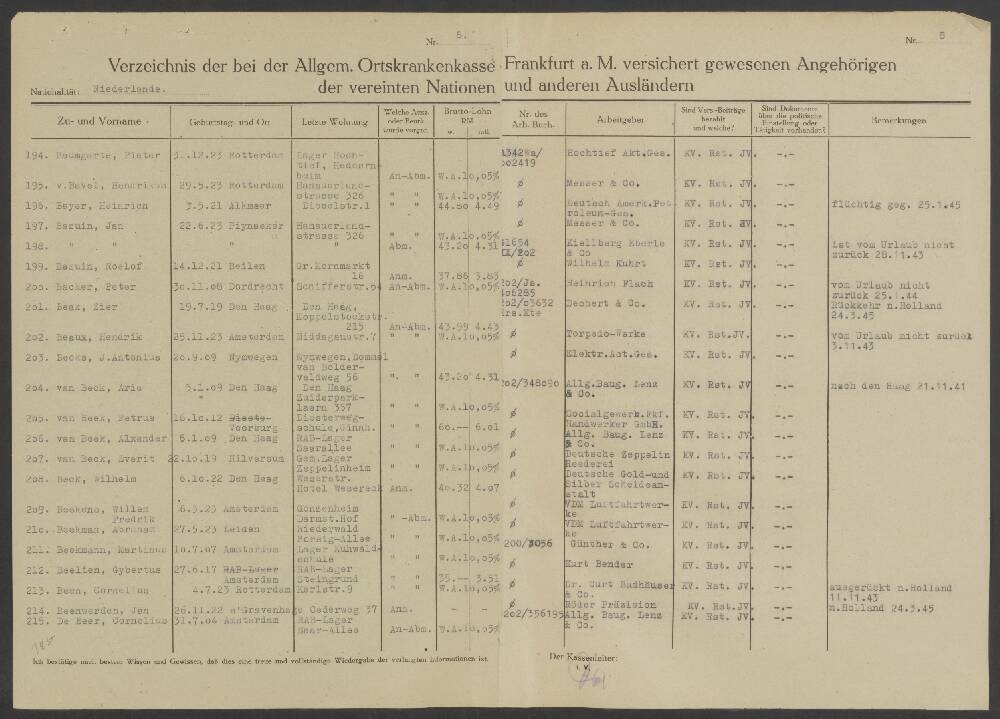 Nr. 8.
Nr. 8
Verzeichnis der bei der Allgem. Ortskrankenkasse Frankfurt a. M. versichert gewesenen Angehörigen
Nationalität: Niederlande. der vereinten Nationen und anderen Ausländern
Zu- und Vorname Geburtstag und Ort Letzte Wohnung Welche Ausz. oder Beruh. wurde vorgen. Brutto-Lohn RM w. mtl. Nr. des Arb. Buch. Arbeitgeber Sind Vers.-Beiträge bezahlt und welche? Sind Dokumente über die politische Einstellung oder Tätigkeit vorhanden? Bemerkungen
194. Baumgarts, Pieter 31.12.23 Rotterdam Lager Hoch- A342Wa/ Hochtief Akt.Ges. KV. Rst. JV. -.-
tief, Heddern- 002419
heim An-Abm. W.A.10,05%
195. v.Bavel, Hendrikus 29.5.23 Rotterdam Hansuerland- ø Messer & Co. KV. Rst. JV. -.-
strasse 326 " " W.A.10,05%
196. Beyer, Heinrich 3.5.21 Alkmaer Dieselstr.1 " " 44.80 4.49 ø Deutsch Amerk.Pet- KV. Rst. JV. -.- flüchtig geg. 25.1.45
roleum-Ges.
197. Bezuin, Jan 22.6.23 Pijnacker Hansuerland- ø Messer & Co. KV. Rst. JV. -.-
strasse 326 " " W.A.10,05%
198. " " " " Abm. 43.20 4.31 41654 Kiellberg Eberle KV. Rst. JV. -.- ist vom Urlaub nicht
IX/202 & Co zurück 28.11.43
199. Bezuin, Roelof 14.12.21 Beilen Gr.Kornmarkt ø Wilhelm Kuhrt KV. Rst. JV. -.-
18 Anm. 37.86 3.83
200. Backer, Peter 30.11.08 Dordrecht Schifferstr.64 An-Abm. W.A.10,05% 202/Ja. Heinrich Flach KV. Rst. JV. -.- vom Urlaub nicht
406285 zurück 25.1.44
201. Beax, Zier 19.7.19 Den Haag Den Haag, 202/03632 Dechert & Co. KV. Rst. JV. -.- Rückkehr n.Holland
Koppelstockstr. Ers.Kte 24.3.45
215 An-Abm. 43.99 4.43
202. Beaux, Hendrik 25.11.23 Amsterdam Niddagaustr.7 " " W.A.10,05% ø Torpedo-Werke KV. Rst.JV. -.- vom Urlaub nicht zurück
3.11.43
203. Becks, J.Antonius 20.9.09 Nymwegen Nymwegen,Dommel ø Elektr.Act.Ges. KV. Rst. JV. -.-
van Bolder-
veldweg 56 " " 43.20 4.31
204. van Beck, Arie 5.1.09 Den Haag Den Haag 202/348090 Allg.Baug. Lenz KV. Rst. JV -.- nach den Haag 21.11.41
Zuiderpark- & Co.
laarn 357 " " W.A.10,05%
205. van Beek, Petrus 16.10.12 Diesterweg- ø Socialgewerk.Fkf. KV. Rst. JV. -.-
Voorburg schule,Ginnh. " " 60.-- 6.01 Handwerker GmbH.
206. van Beek, Alxander 6.1.09 Den Haag RAB-Lager ø Allg. Baug. Lenz KV. Rst. JV. -.-
Saarallee " " W.A.10,05% & Co.
207. van Beek, Everit 22.10.19 Hilversum Gem.Lager ø Deutsche Zeppelin KV. Rst. JV. -.-
Zeppelinheim " " W.A.10,05% Reederei
208. Beck, Wilhelm 6.10.22 Den Haag Weserstr. ø Deutsche Gold-und KV. Rst. JV. -.-
Hotel Wesereck Anm. 40.32 4.07 Silber Scheidean-
stalt
209. Beekens, Willem 6.3.23 Amsterdam Gonzenheim ø VDM Luftfahrtwer- KV. Rst. JV. -.-
Fredrik Darmst.Hof " -Abm. W.A.10,05% ke
210. Beekman, Abraham 27.5.23 Leiden Riederwald ø VDM Luftfahrtwer- KV. Rst. JV. -.-
Morsig-Allee " " W.A.10,05% ke
211. Beekmann, Martinus 10.7.07 Amsterdam Lager Kuhwald- 200/3056 Günther & Co. KV. Rst. JV. -.-
schule " " W.A.10,05%
212. Beelien, Gybertus 27.6.17 RAB-Lager RAB-Lager ø Kurt Bender KV. Rst. JV. -.-
Amsterdam Steingrund " " 35.-- 3.51
213. Been, Cornelius 4.7.23 Rotterdam Karlstr.9 " " W.A.10,05% ø Dr. Curt Badhäuser KV. Rst. JV. -.- ausgerückt n.Holland
& Co. 11.11.43
214. Beenwerden, Jan 26.11.22 s'Gravenhage Oederweg 37 Anm. - - ø Röder Präzision KV. Rst. JV. -.- n.Holland 24.3.45
215. De Beer, Cornelius 31.7.04 Amsterdam RAB-Lager 202/356195 Allg. Baug. Lenz KV. Rst. JV. -.-
Saar-Allee An-Abm. W.A.10,05% & Co.
Ich bestätige nach bestem Wissen und Gewissen, daß dies eine treue und vollständige Wiedergabe der verlangten Informationen ist.
Der Kassenleiter:
i. V.